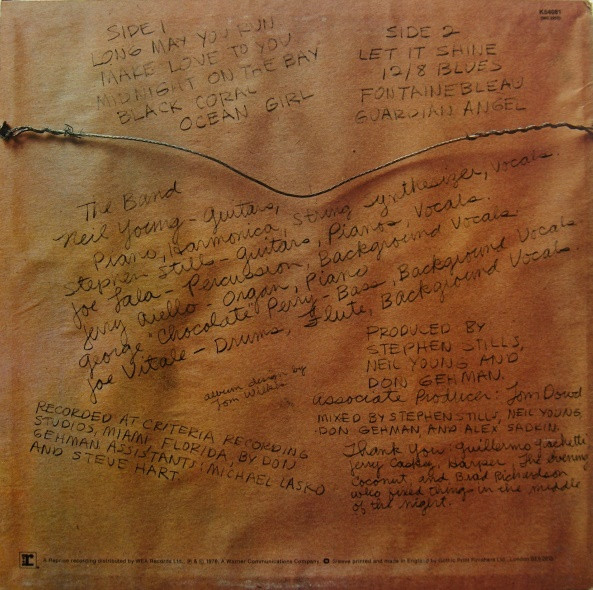 K54081
SIDE 1
LONG MAY YOU RUN
MAKE LOVE TO YOU
MIDNIGHT ON THE BAY
BLACK CORAL
OCEAN GIRL
SIDE 2
LET IT SHINE
12/8 BLUES
FONTAINEBLEAU
GUARDIAN ANGEL
The Band
Neil Young - Guitars,
Piano, Harmonica, String Synthesizer, Vocals.
Stephen Stills - Guitars, Piano, Vocals.
Joe Lala - Percussion, Background Vocals.
Jerry Aiello - Organ, Piano
George "Chocolate" Perry - Bass, Background Vocals.
Joe Vitale - Drums, Flute, Background Vocals.
album design by
Tom Wilkes
PRODUCED BY
STEPHEN STILLS,
NEIL YOUNG AND
DON GEHMAN.
Associate Producer: Tom Dowd
MIXED BY STEPHEN STILLS, NEIL YOUNG,
DON GEHMAN, AND ALEX SADKIN
RECORDED AT CRITERIA RECORDING
STUDIOS, MIAMI FLORIDA, BY DON
GEHMAN ASSISTANTS: MICHAEL LASKO
AND STEVE HART.
Thank You: Guillermo
Jerry Harper, The evening
Coconut, and Brad Richardson
who fixed things in the middle
of the night.
r
A Reprise recording distributed by WEA Records Ltd., ℗ & © 1976, A Warner Communications Company. Sleeve printed and made in England by